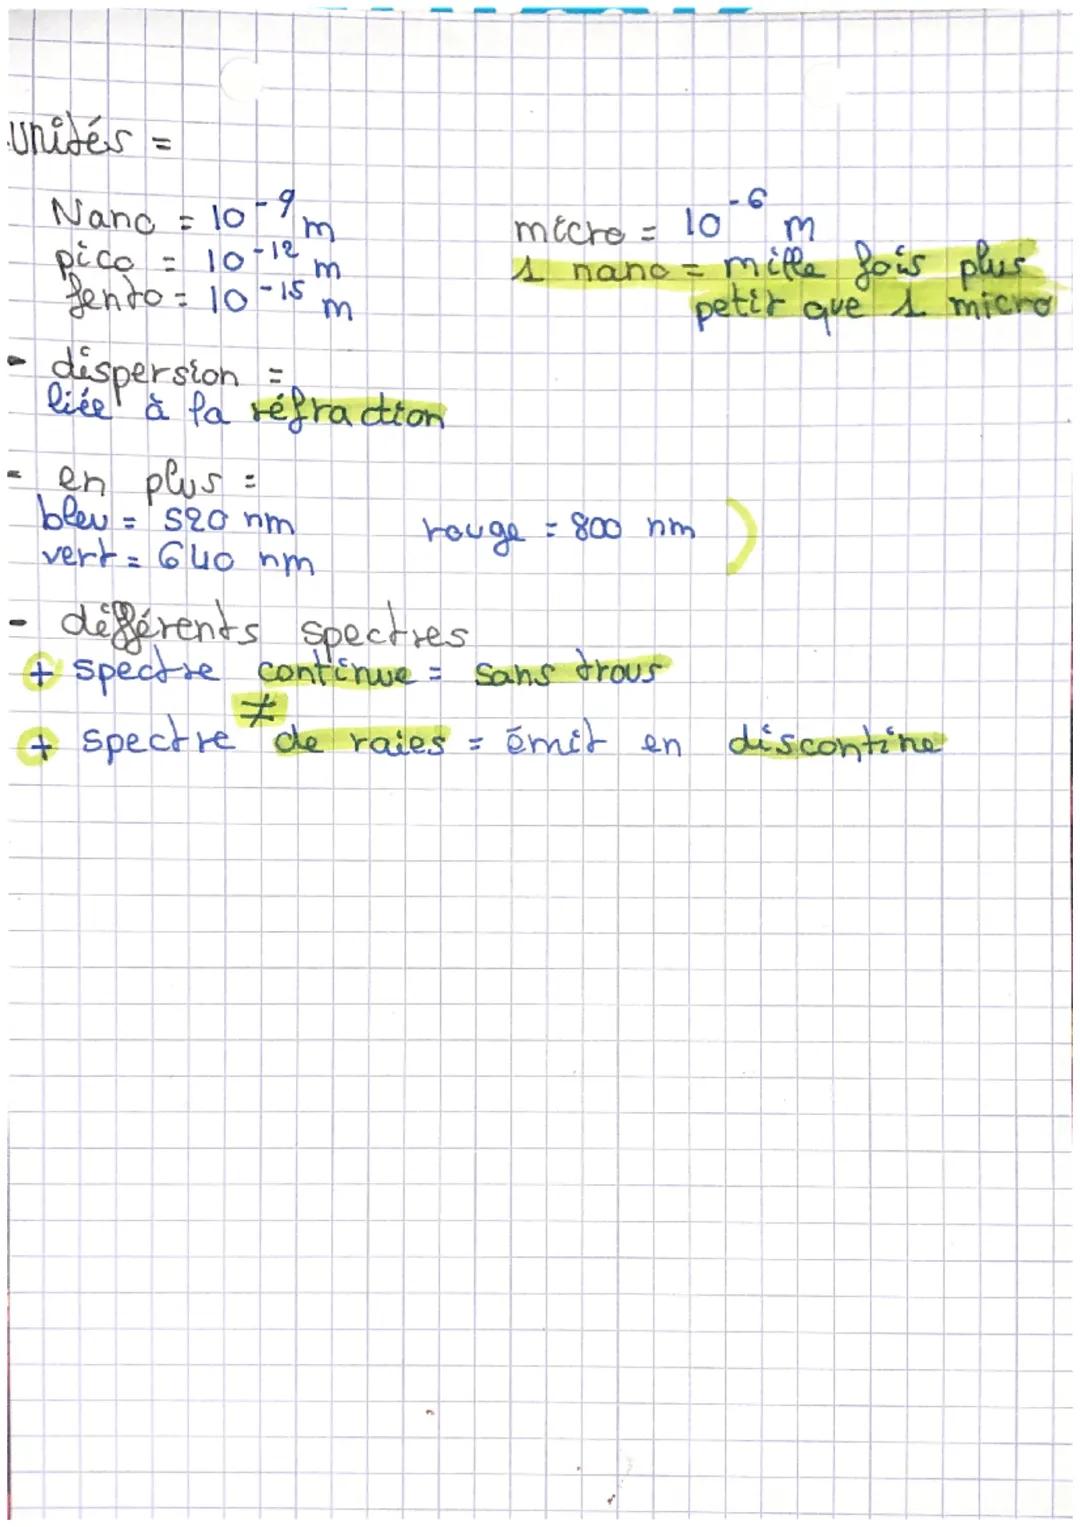 unités =
Nano = 10⁻⁹ m
pico = 10⁻¹² m
fento = 10⁻¹⁵ m
micro = 10⁻⁶ m
1 nano = mille fois plus
petit que 1 micro
- dispersion =
liée à la réfraction
- en plus =
bleu = 520 nm
vert = 640 nm
rouge = 800 nm )
- différents spectres
+ spectre continue = sans trous
≠
+ spectre de raies = émit en discontine